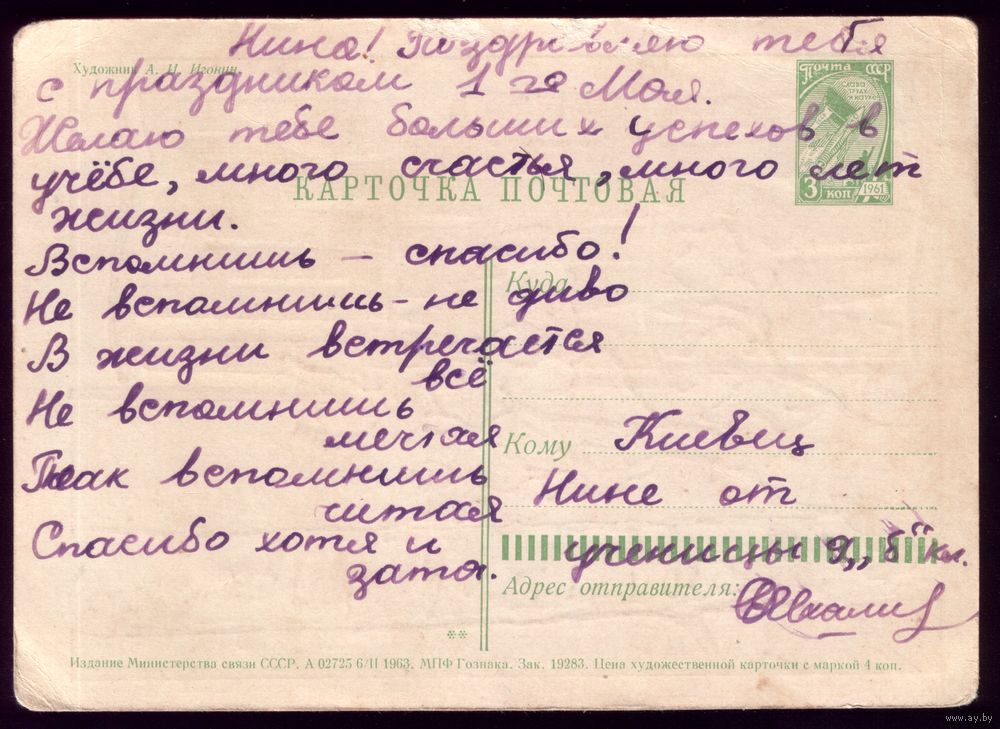 Нина! Поздравляю тебя
Художник А. И. Игонин
с праздником 1 го Мая.
Желаю тебе больших успехов в
учёбе, много счастья, много лет
жизни.
Вспомнишь – спасибо!
Не вспомнишь - не диво
В жизни встречается
всё
Не вспомнишь
мечтая
Так вспомнишь
читая
Спасибо хотя и
зато.
КАРТОЧКА ПОЧТОВАЯ
ПОЧТА СССР
СЛАВА
ТРУДУ
И НАУКЕ
3 КОП
1961
Куда
Кому Киевец
Нине от
ученицы 9 „Б" кл.
Адрес отправителя:
**
Издание Министерства связи СССР. А 02725 6/II 1963. МПФ Гознака. Зак. 19283. Цена художественной карточки с маркой 4 коп.
www.ay.by